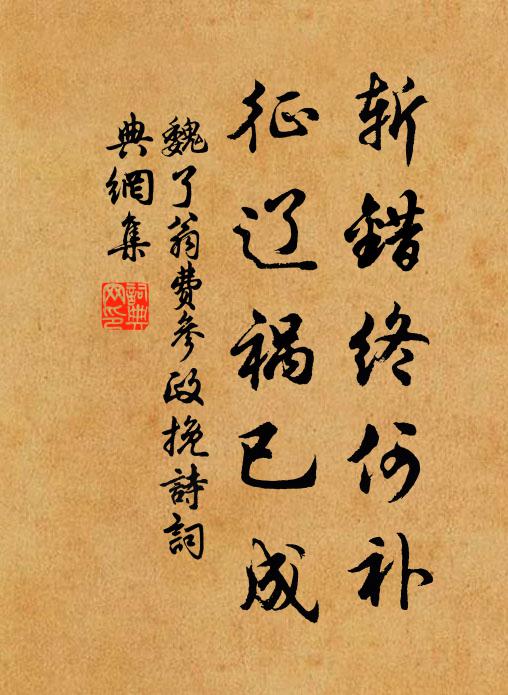 斩錯终何补
征辽祸已成
魏了翁费参政挽詩詞
典網集
詞典網印